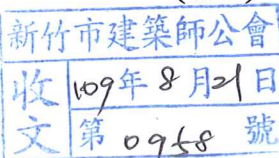 新竹市建築師公會
收文
109年8月21日
第0958號